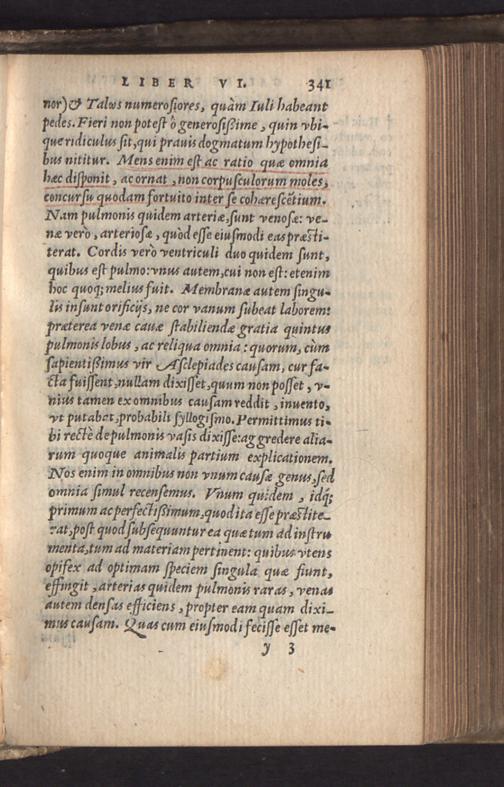 LIBER VI. 341
nor) & Talωs numerosiores, quàm Iuli habeant
pedes. Fieri non potest ô generosißime, quin vbi-
que ridiculus sit, qui prauis dogmatum hypothesi-
bus nititur. Mens enim est ac ratio quæ omnia
hæc disponit, ac ornat, non corpusculorum moles,
concursu quodam fortuito inter se cohærescẽtium.
Nam pulmonis quidem arteriæ, sunt venosæ: ve-
næ verò, arteriosæ, quòd esse eiusmodi eas præsti-
terat. Cordis verò ventriculi duo quidem sunt,
quibus est pulmo: vnus autem, cui non est: etenim
hoc quoq; melius fuit. Membranæ autem singu-
lis insunt orificijs, ne cor vanum subeat laborem:
præterea venæ cauæ stabiliendæ gratia quintus
pulmonis lobus, ac reliqua omnia: quorum, cùm
sapientißimus vir Asclepiades causam, cur fa-
cta fuissent, nullam dixisset, quum non posset, v-
nius tamen ex omnibus causam reddit, inuento,
vt putabat, probabili syllogismo. Permittimus ti-
bi rectè de pulmonis vasis dixisse: aggredere alia-
rum quoque animalis partium explicationem.
Nos enim in omnibus non vnum causæ genus, sed
omnia simul recensemus. Vnum quidem, idq;
primum ac perfectißimum, quod ita esse præstite-
rat, post quod subsequuntur ea quæ tum ad instru
menta, tum ad materiam pertinent: quibus vtens
opifex ad optimam speciem singula quæ fiunt,
effingit, arterias quidem pulmonis raras, venas
autem densas efficiens, propter eam quam dixi-
mus causam. Quas cum eiusmodi fecisse esset me-
y 3